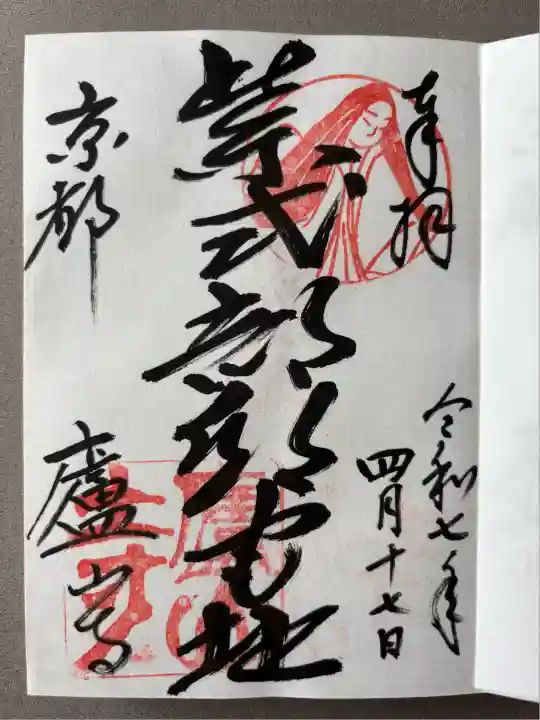 奉拝
令和七年
四月十七日
紫式部邸宅址
京都 廬山寺